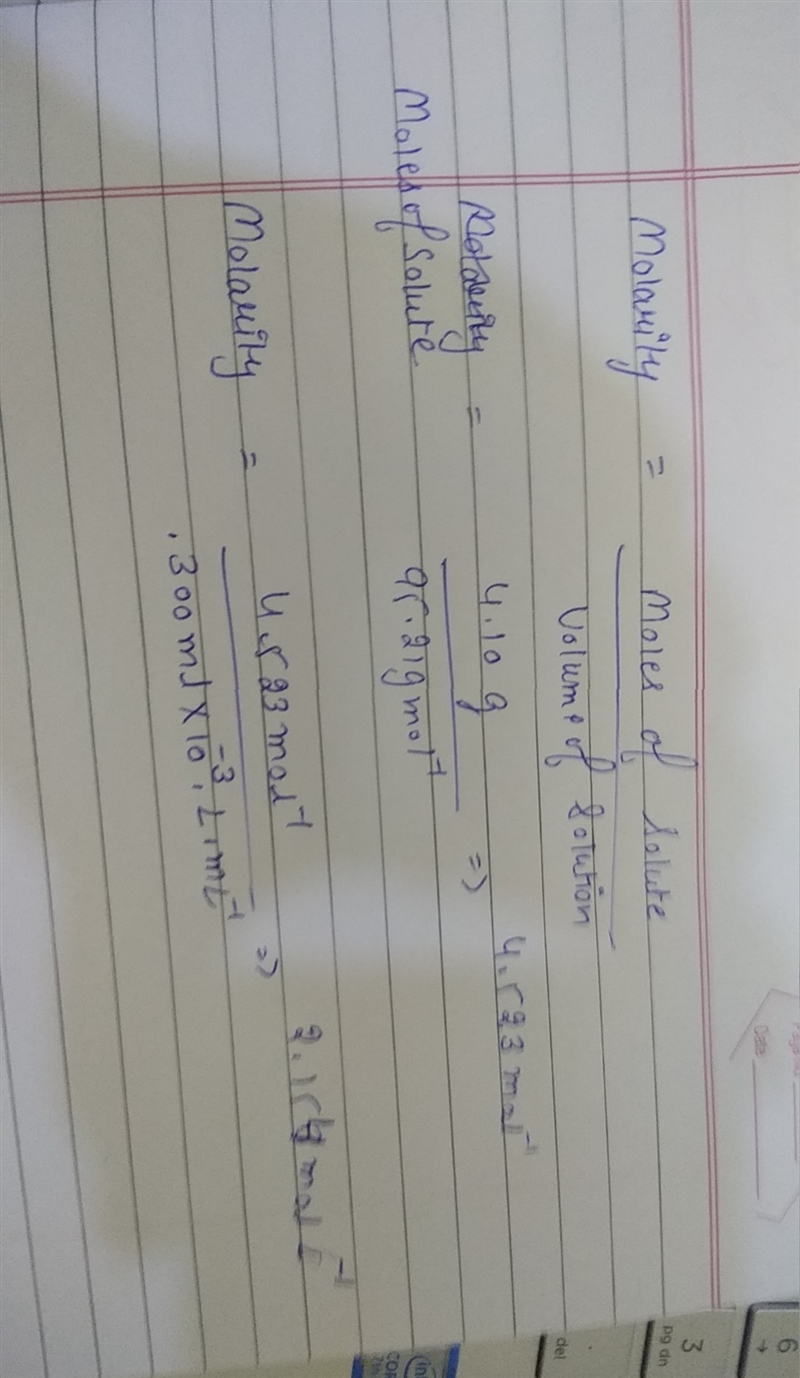 Molarity = Moles of Solute
Volume of Solution
Molarity = 4.10 g => 4.523 mol⁻¹
Moles of Solute 95.21g mol⁻¹
Molarity = 4.523 mol⁻¹ => 2.154 mol L⁻¹
.300 ml x 10⁻³ . L . mL⁻¹
Date
6
3
pg dn
del